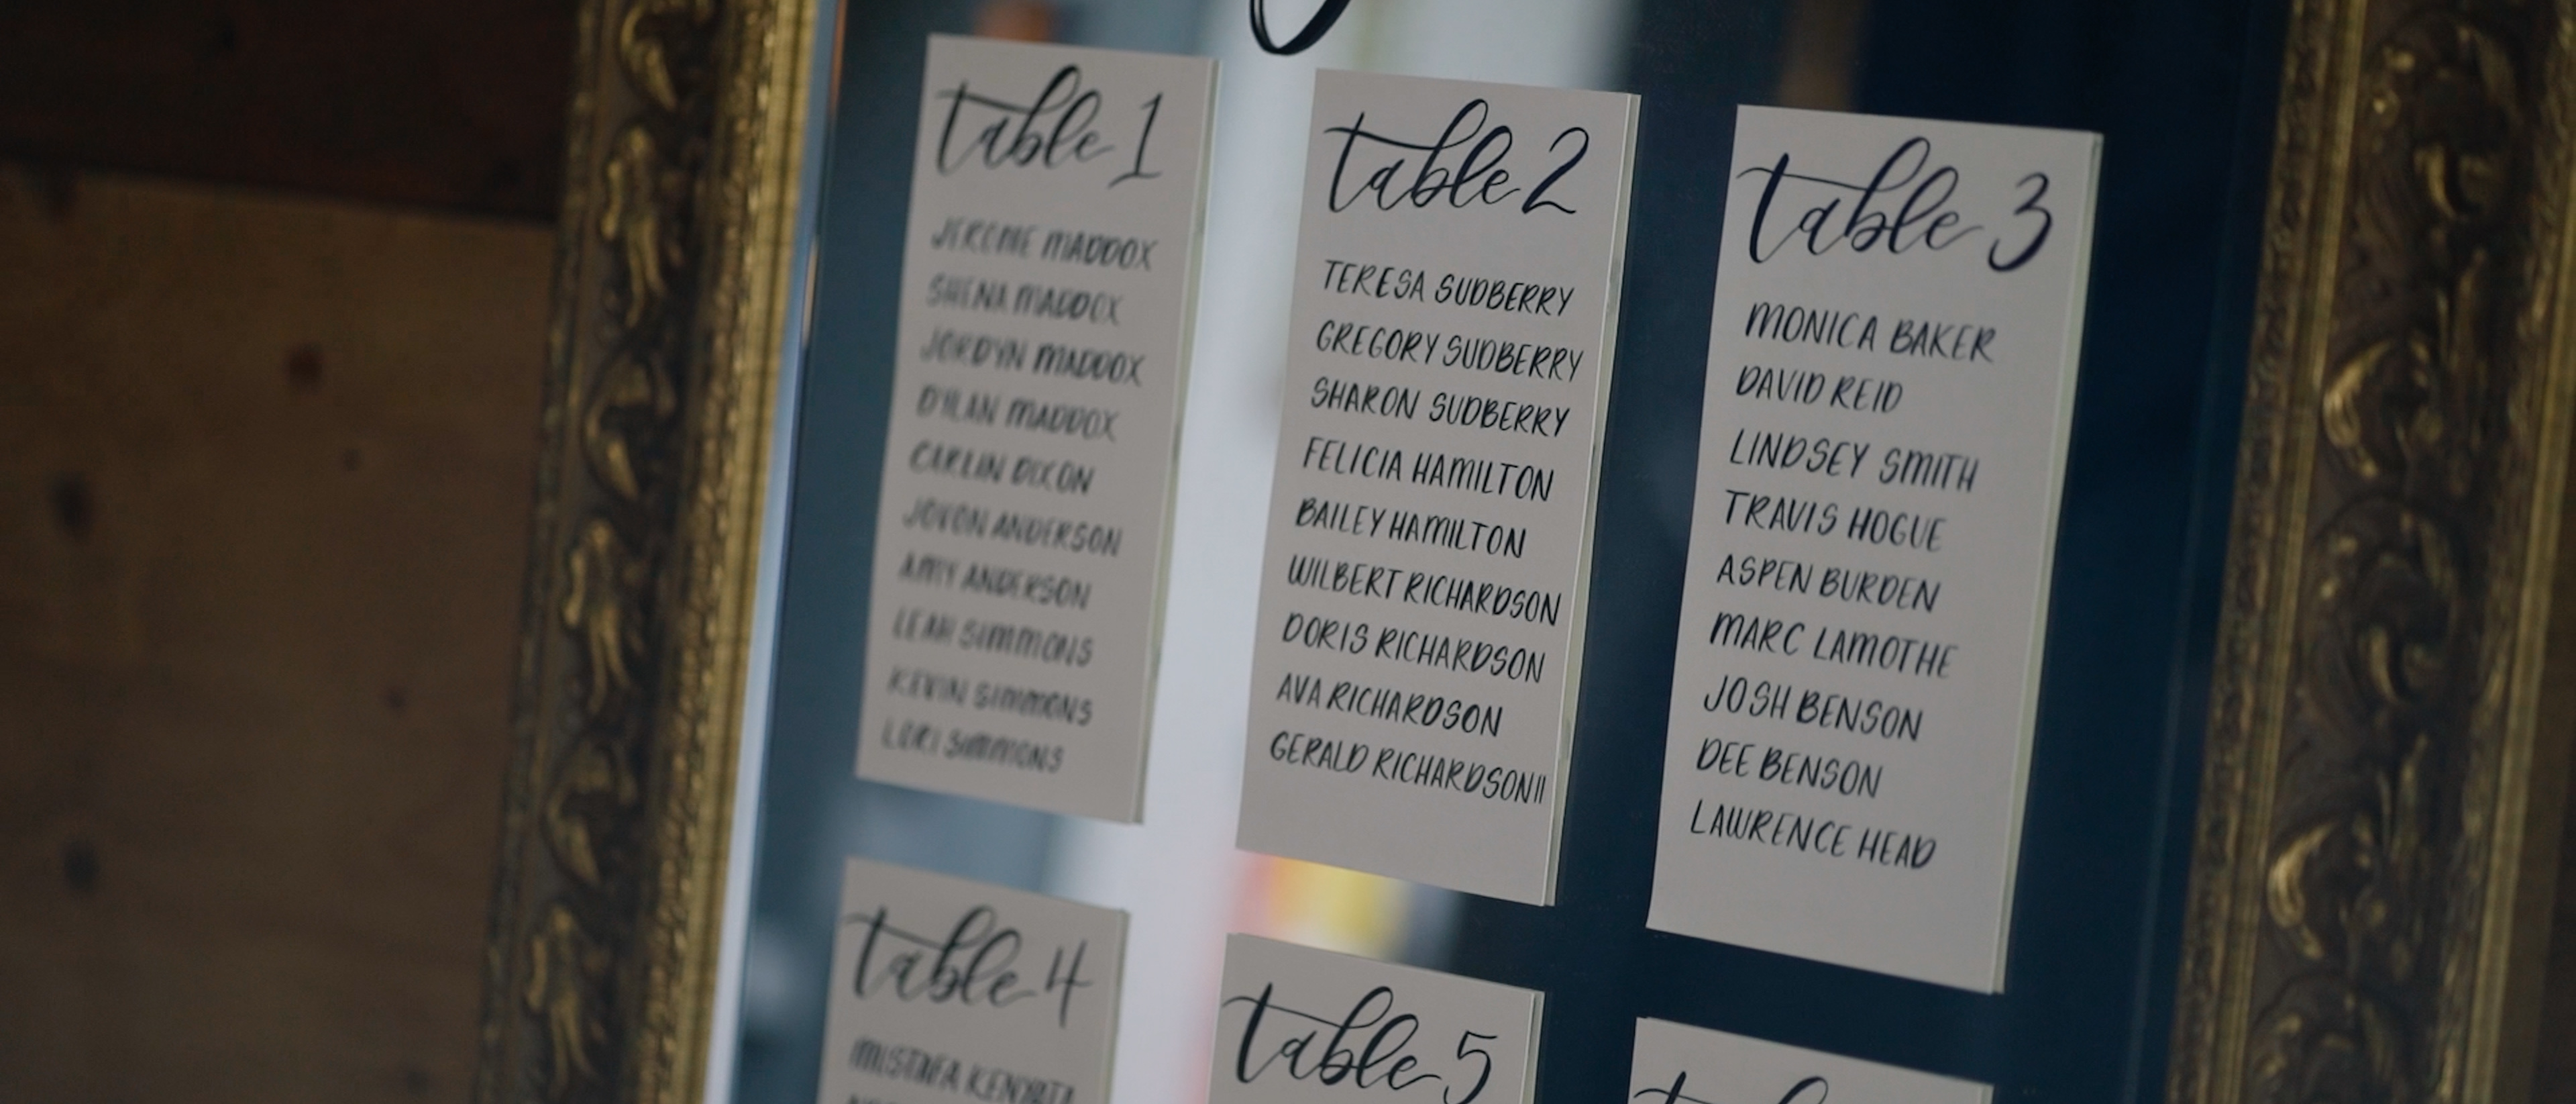 table 1
JEROME MADDOX
SHENA MADDOX
JORDYN MADDOX
DYLAN MADDOX
CARLIN DIXON
JOVON ANDERSON
AMY ANDERSON
LEAH SIMMONS
KEVIN SIMMONS
LORI SIMMONS
table 2
TERESA SUDBERRY
GREGORY SUDBERRY
SHARON SUDBERRY
FELICIA HAMILTON
BAILEY HAMILTON
WILBERT RICHARDSON
DORIS RICHARDSON
AVA RICHARDSON
GERALD RICHARDSON II
table 3
MONICA BAKER
DAVID REID
LINDSEY SMITH
TRAVIS HOGUE
ASPEN BURDEN
MARC LAMOTHE
JOSH BENSON
DEE BENSON
LAWRENCE HEAD
table 4
table 5